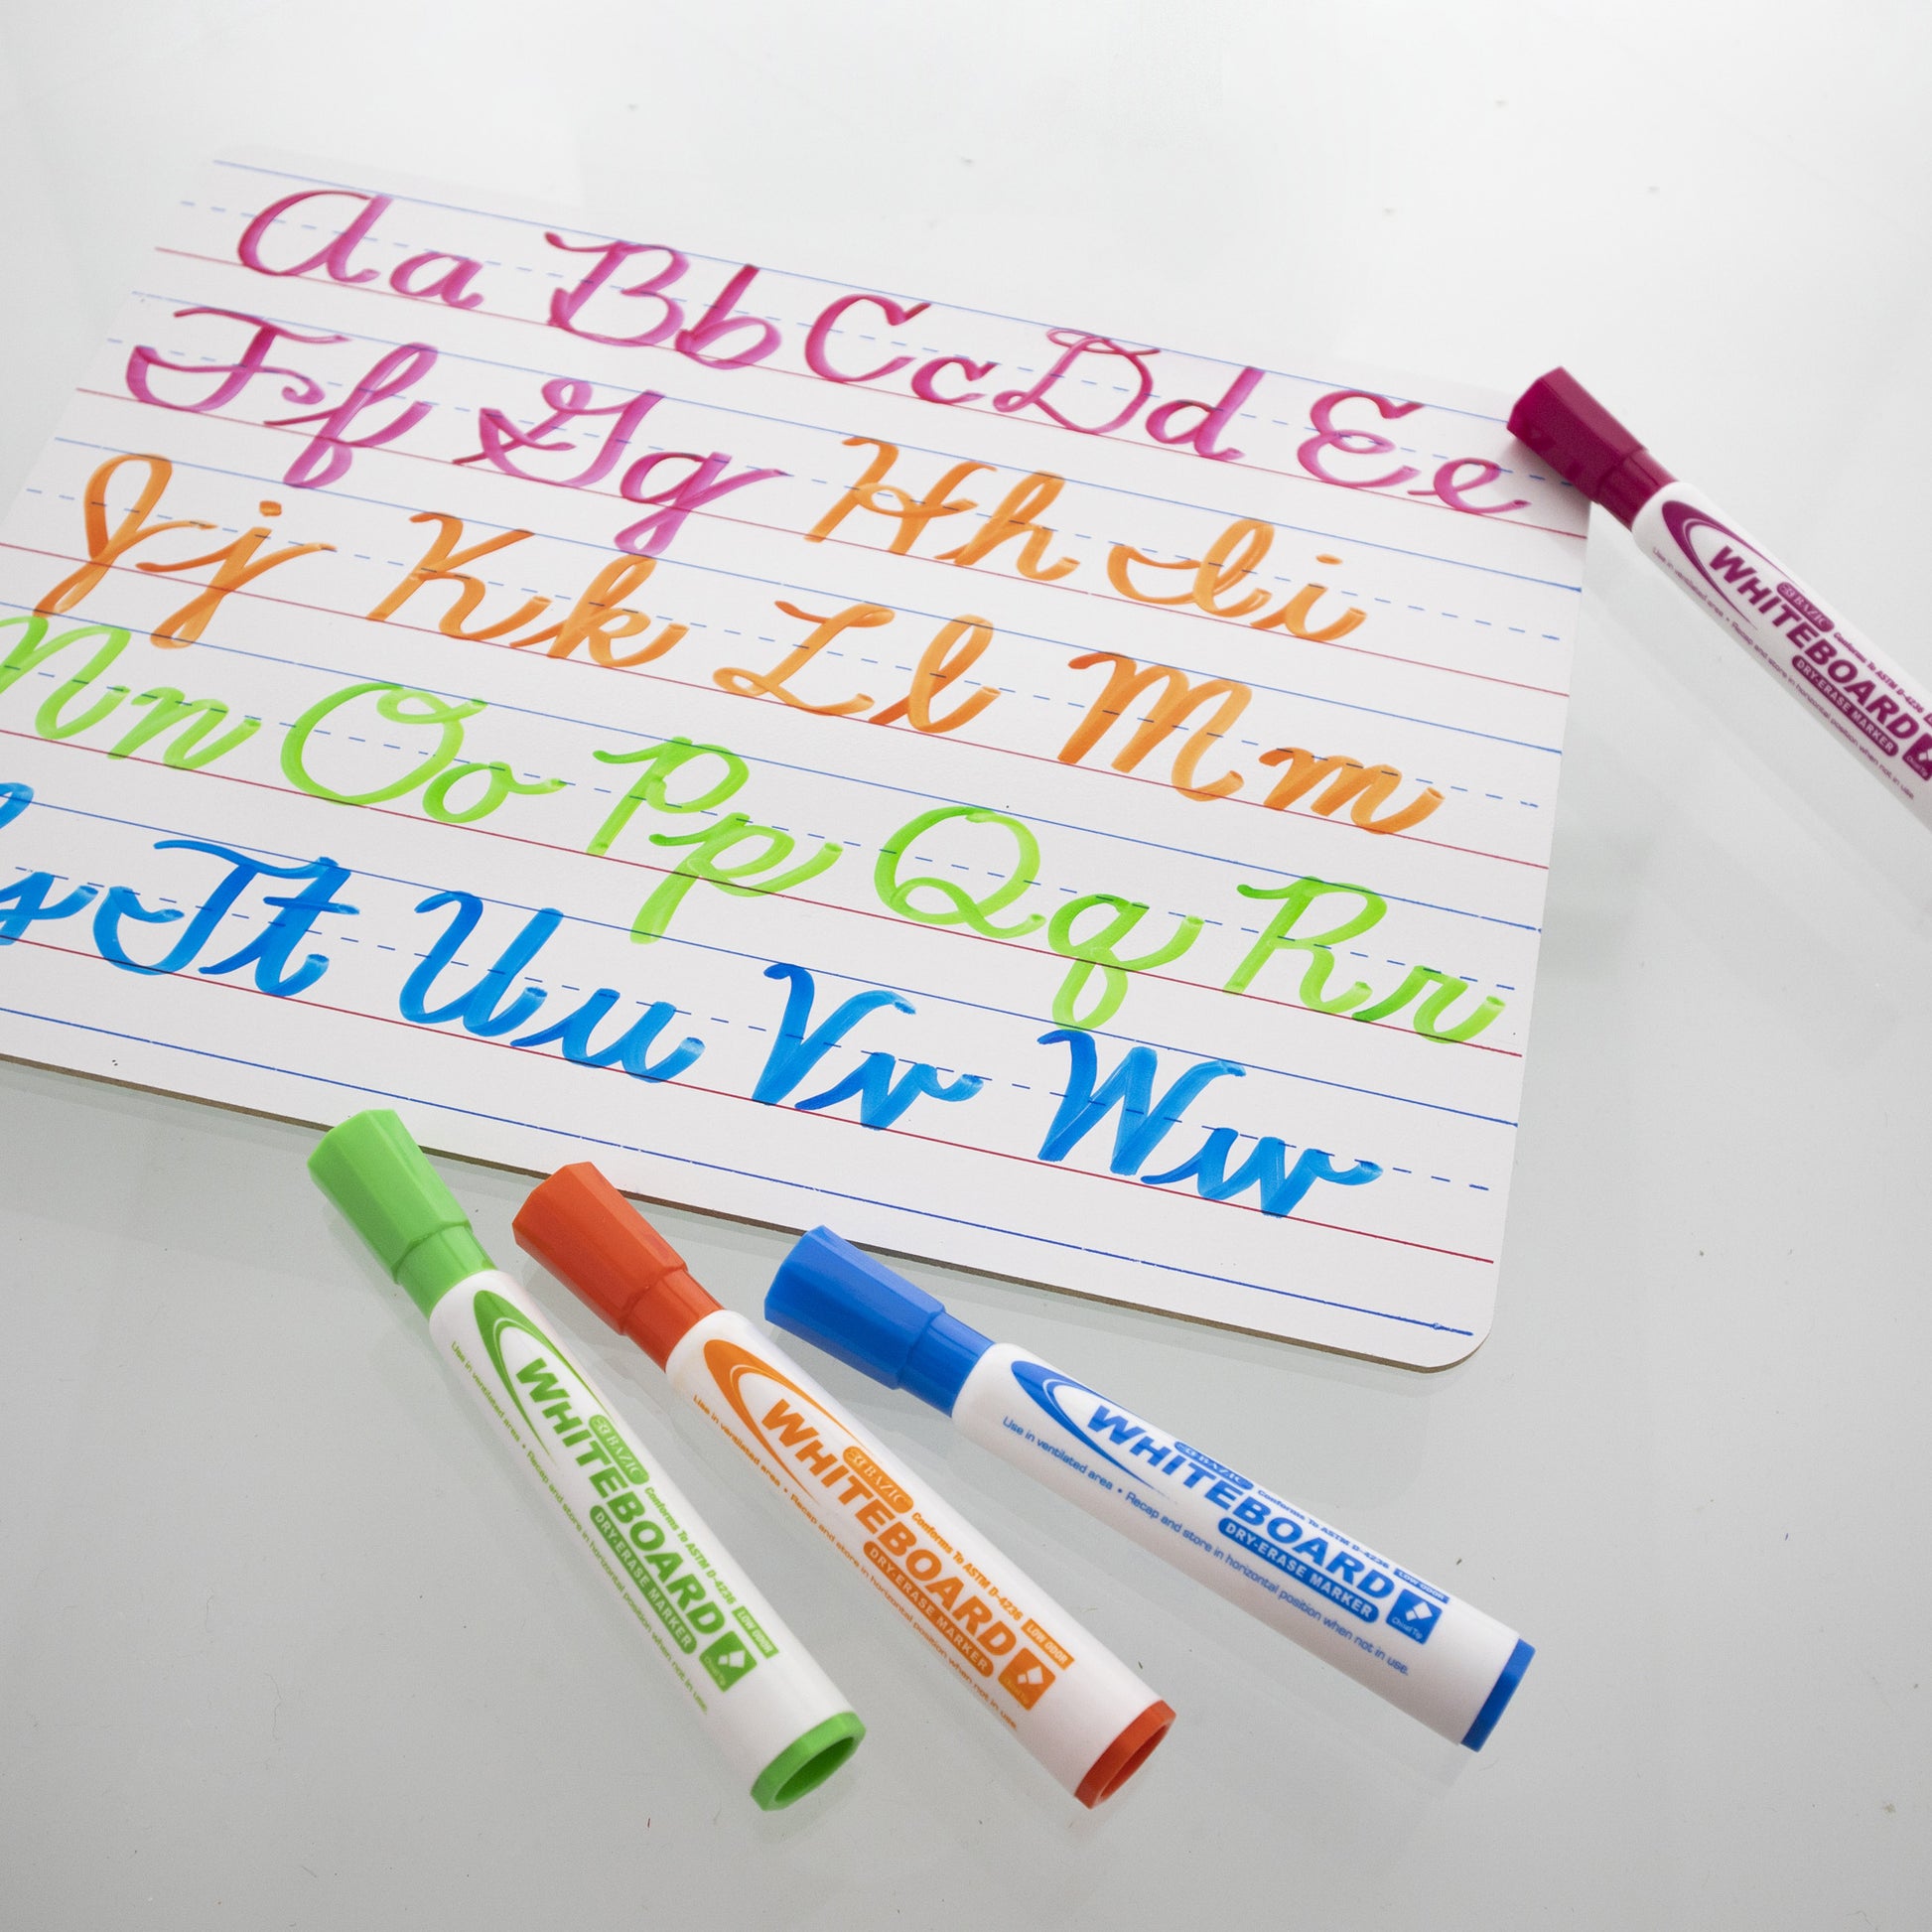 Aa Bb Cc Dd Ee
Ff Gg Hh Ii
Jj Kk Ll Mm
Nn Oo Pp Qq Rr
s Tt Uu Vv Ww
BAZIC
Conforms To ASTM D-4236
WHITEBOARD
DRY-ERASE MARKER
Use in ventilated area • Recap and store in horizontal position when not in use.
BAZIC
Conforms To ASTM D-4236 LOW ODOR
WHITEBOARD
DRY-ERASE MARKER
Chisel Tip
Use in ventilated area • Recap and store in horizontal position when not in use.
BAZIC
Conforms To ASTM D-4236 LOW ODOR
WHITEBOARD
DRY-ERASE MARKER
Chisel Tip
Use in ventilated area • Recap and store in horizontal position when not in use.
BAZIC
Conforms To ASTM D-4236 LOW ODOR
WHITEBOARD
DRY-ERASE MARKER
Chisel Tip
Use in ventilated area • Recap and store in horizontal position when not in use.